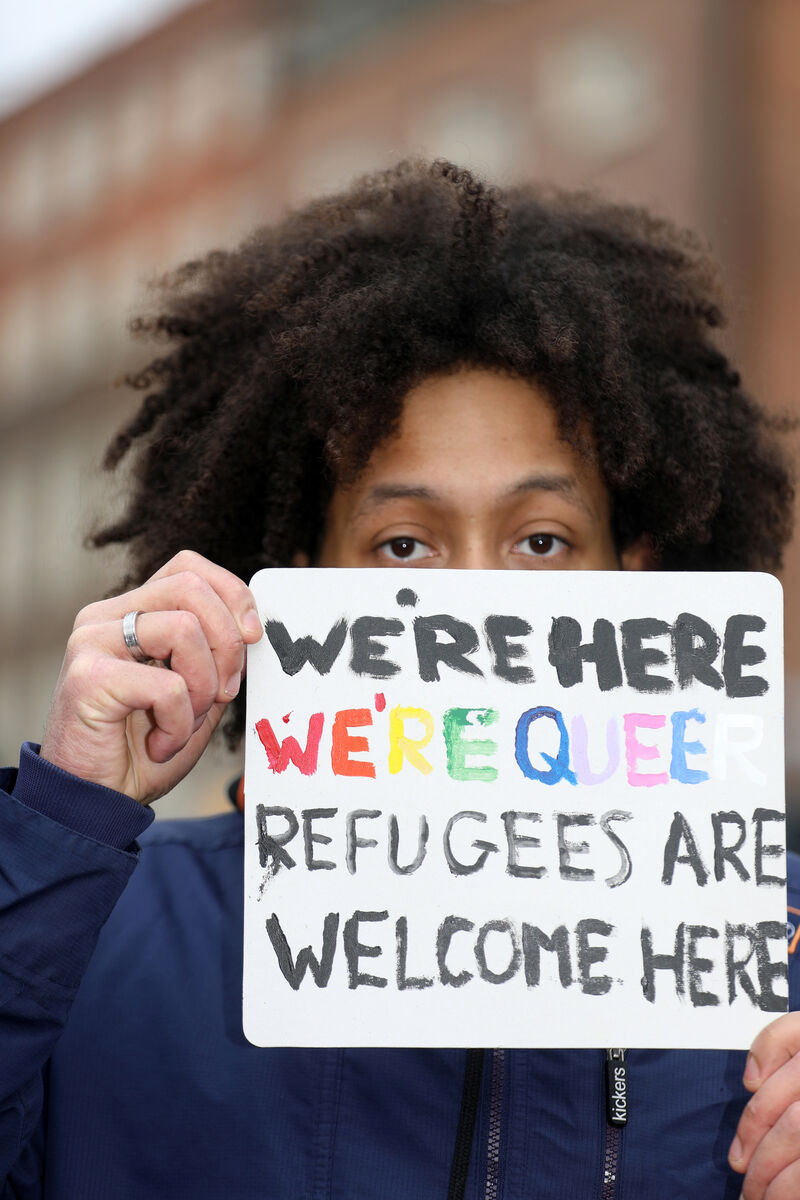 WE'RE HERE
WE'RE QUEER
REFUGEES ARE
WELCOME HERE
kickers